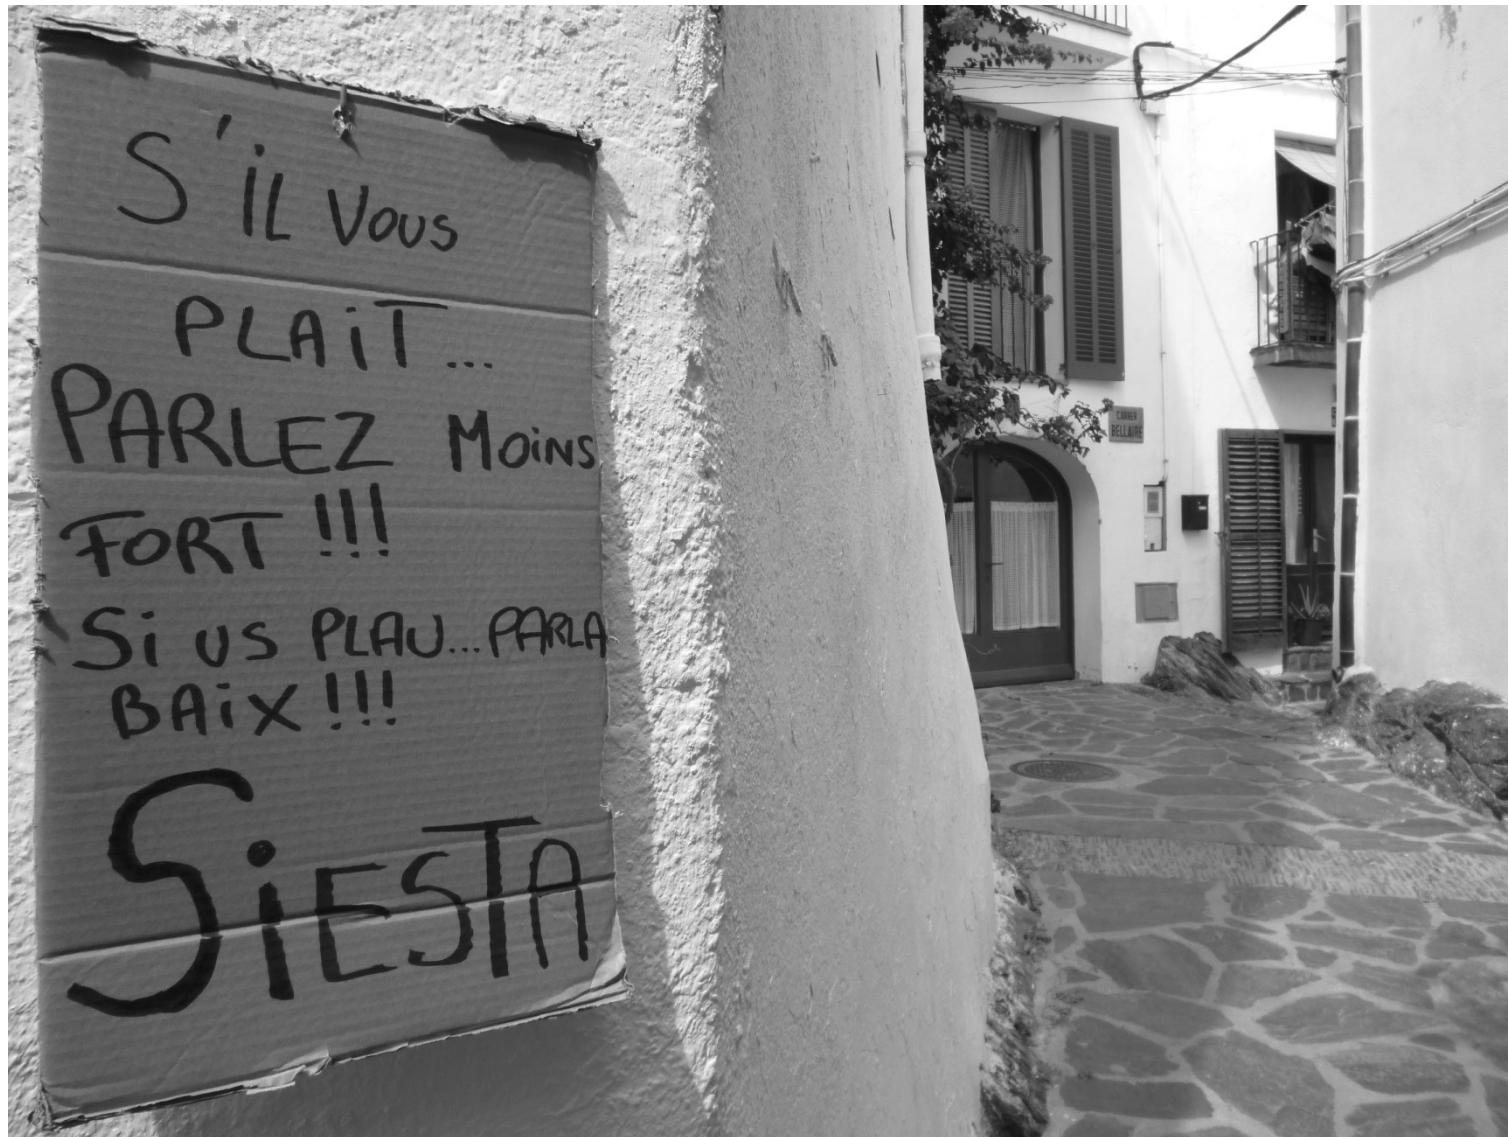 S'iL Vous
PLAiT...
PARLEZ MoiNS
FORT !!!
Si US PLAU... PARLA
BAiX !!!
SiESTA
CARRER
BELLAIRE